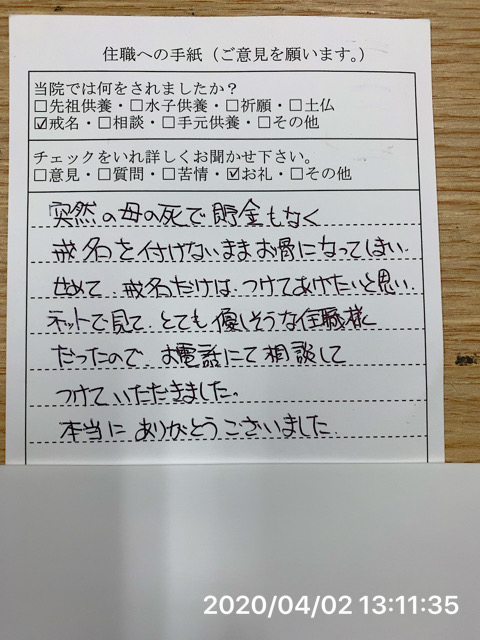 住職への手紙（ご意見を願います。）
当院では何をされましたか？
□先祖供養・□水子供養・□祈願・□土仏
☑戒名・□相談・□手元供養・□その他
チェックをいれ詳しくお聞かせ下さい。
□意見・□質問・□苦情・☑お礼・□その他
突然の母の死で貯金もなく
戒名を付けないままお骨になってしまい.
せめて、戒名だけは、つけてあげたいと思い.
ネットで見て、とても優しそうな住職様
だったので、お電話にて相談して
つけていただきました。
本当に ありがとうございました.
2020/04/02 13:11:35